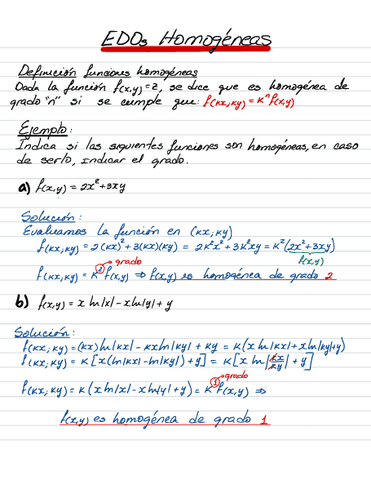 EDOs Homogéneas
Definición funciones homogéneas
Dada la función f(x,y)=z, se dice que es homogénea de
grado "n" si se cumple que: f(kx,ky)=kⁿf(x,y)
Ejemplo:
Indica si las siguientes funciones son homogéneas, en caso
de serlo, indicar el grado.
a) f(x,y) = 2x²+3xy
Solución:
Evaluamos la función en (kx;ky)
f(kx,ky) = 2(kx)²+3(kx)(ky) = 2k²x²+3k²xy = k²(2x²+3xy)
f(x,y)
grado
f(kx,ky) = k² f(x,y) ⇒ f(x,y) es homogénea de grado 2
b) f(x,y) = x ln|x| - x ln|y| + y
Solución:
f(kx;ky) = (kx)ln|kx| - kx ln|ky| + ky = k(x ln|kx| + x ln|ky|+y)
f(kx;ky) = k[x(ln|kx| - ln|ky|) + y] = k[x ln|kx/ky| + y]
grado
f(kx;ky) = k(x ln|x| - x ln|y| + y) = k¹ f(x,y) ⇒
f(x,y) es homogénea de grado 1